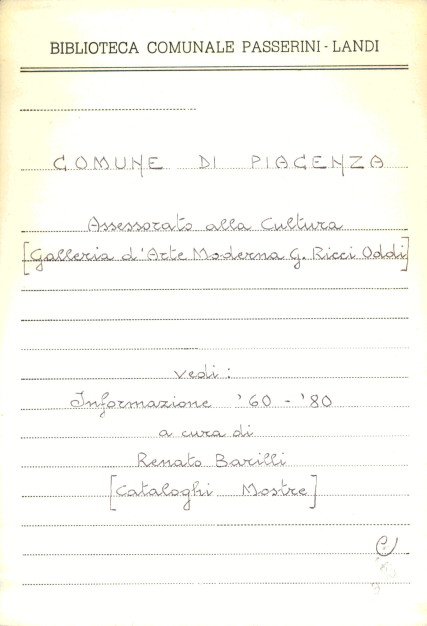 BIBLIOTECA COMUNALE PASSERINI - LANDI
COMUNE DI PIACENZA
Assessorato alla Cultura
[Galleria d'Arte Moderna G. Ricci Oddi]
vedi :
Informazione '60 - '80
a cura di
Renato Barilli
[Cataloghi Mostre]